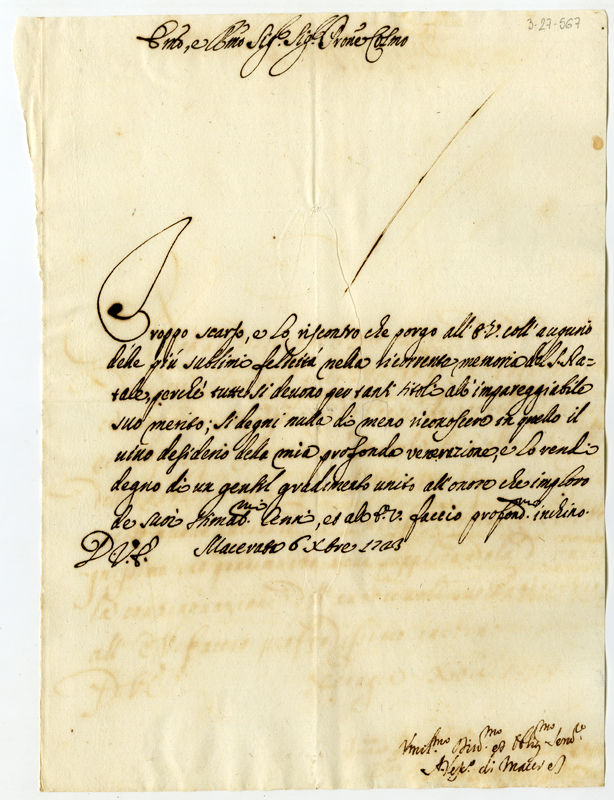 3-27-567
Em̃o, e Rm̃o Sig.r Sig.r Pron̄e Col̄mo
Troppo scarso, e lo riscontro che porgo all' E. V. coll' augurio
delle più sublimi felicità nella ricorrente memoria del S. Na-
tale, perchè tutte si devono per tanti titoli all' impareggiabile
suo merito; si degni nulla di meno riconoscere in quello il
vivo desiderio della mia profonda venerazione, e lo rendi
degno di un gentil gradimento unito all' onore che imploro
de suoi stimat.mi cenni, et all' E. V. faccio profond.mo inchino.
D. V. E. Macerata 6 Xbre 1723
Umil.mo Div.mo ed Obblig.mo Serv.re
A Vesc.o di Macer